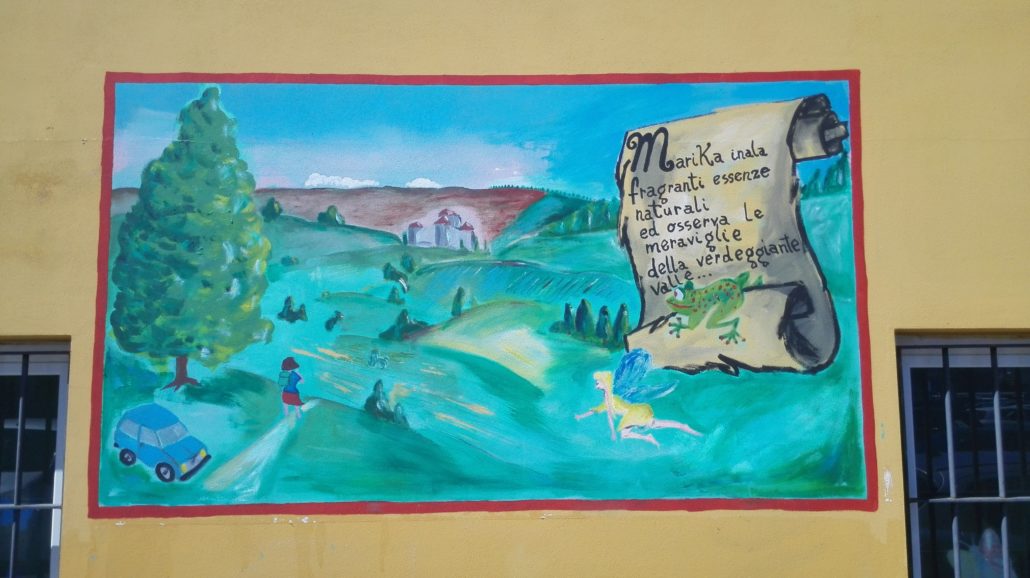 MariKa inala
fragranti essenze
naturali
ed osserva le
meraviglie
della verdeggiante
valle...